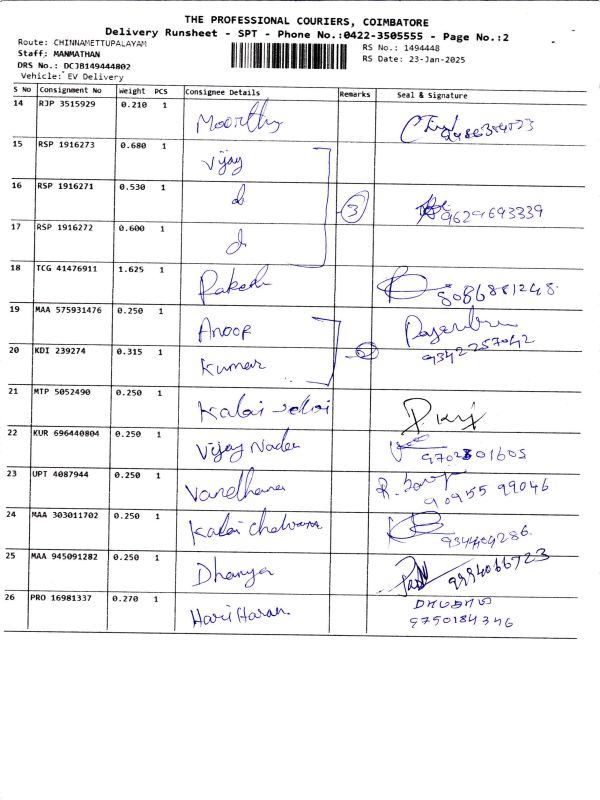 THE PROFESSIONAL COURIERS, COIMBATORE
Delivery Runsheet - SPT - Phone No.:0422-3505555 - Page No.:2
Route: CHINNAMETTUPALAYAM
Staff: MANMATHAN
DRS No.: DCJB149444802
Vehicle: EV Delivery
RS No.: 1494448
RS Date: 23-Jan-2025
S No Consignment No Weight PCS Consignee Details Remarks Seal & Signature
14 RJP 3515929 0.210 1 Moorthy
15 RSP 1916273 0.680 1 Vijay
16 RSP 1916271 0.530 1 3 9629693339
17 RSP 1916272 0.600 1
18 TCG 41476911 1.625 1 Rakesh 8086881248
19 MAA 575931476 0.250 1 Anoop
20 KDI 239274 0.315 1 Kumar 2 9342257042
21 MTP 5052490 0.250 1 Kalai selvi
22 KUR 696440804 0.250 1 Vijay 
23 UPT 4087944 0.250 1 Vandhana 90955 99046
24 MAA 303011702 0.250 1
25 MAA 945091282 0.250 1 Dhanya 9994066723
26 PRO 16981337 0.270 1 Hari Haran
9750184346